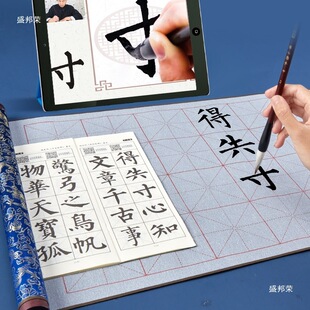 盛邦荣
盛邦荣
寸
寸
得失寸
得失寸心知
文章千古事
驚弓之鳥帆
物華天寶
盛邦荣